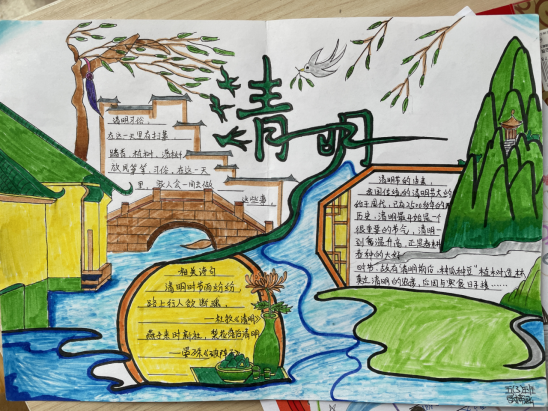 清明
清明习俗，
在这一天里有扫墓、
踏青、植树、荡秋千
放风筝等习俗，在这一天
里，家人会一同去做
这些事。
清明节的由来，
我国传统的清明节大约
始于周代，已有2500多年的
历史，清明最开始是一个
很重要的节气，清明一
到气温升高，正是春耕
春种的大好
时节，故有“清明前后，种瓜种豆”“植树造林，
莫过清明的
相关诗句
清明时节雨纷纷，
路上行人欲断魂。
—杜牧《清明》
燕子来时新社，梨花落后清明
—晏殊《破阵子》